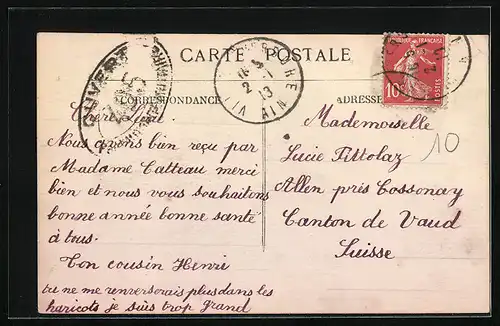 CARTE POSTALE
CORRESPONDANCE
ADRESSE
OUVERT
16 5
2 -1
13
AIN
RÉPUBLIQUE FRANÇAISE
10
POSTES
10
Nous avons bien reçu par
Madame Catteau merci
bien et nous vous souhaitons
bonne année bonne santé
à tous.
Ton cousin Henri
tu ne me renverserais plus dans les
haricots je suis trop grand
Mademoiselle
Lucie Pittolaz
Allen près Cossonay
Canton de Vaud
Suisse